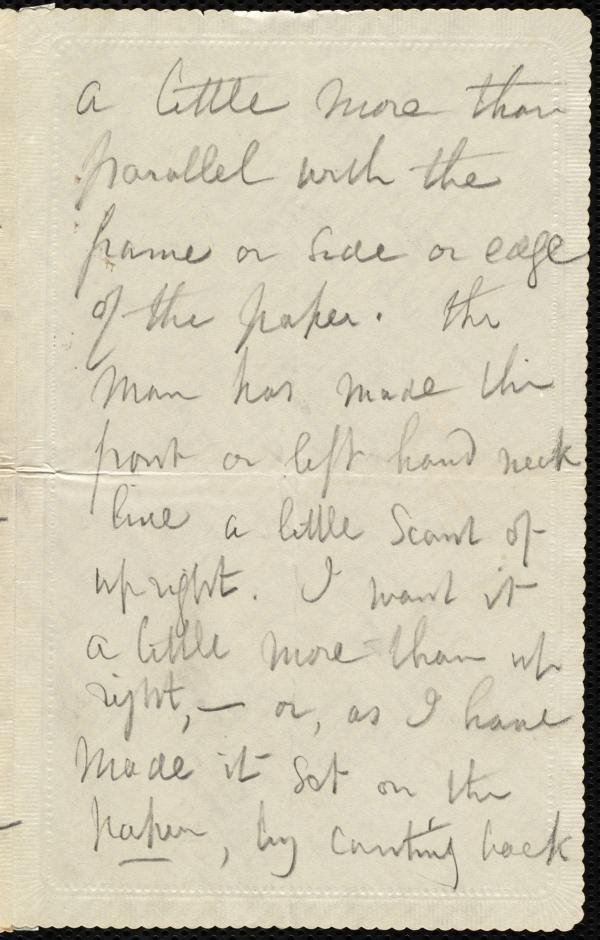 a little more than
parallel with the
frame or side or edge
of the paper. the
man has made the
front or left hand neck
line a little scant of
upright. I want it
a little more than up
right, — or, as I have
made it set on the
paper, by canting back